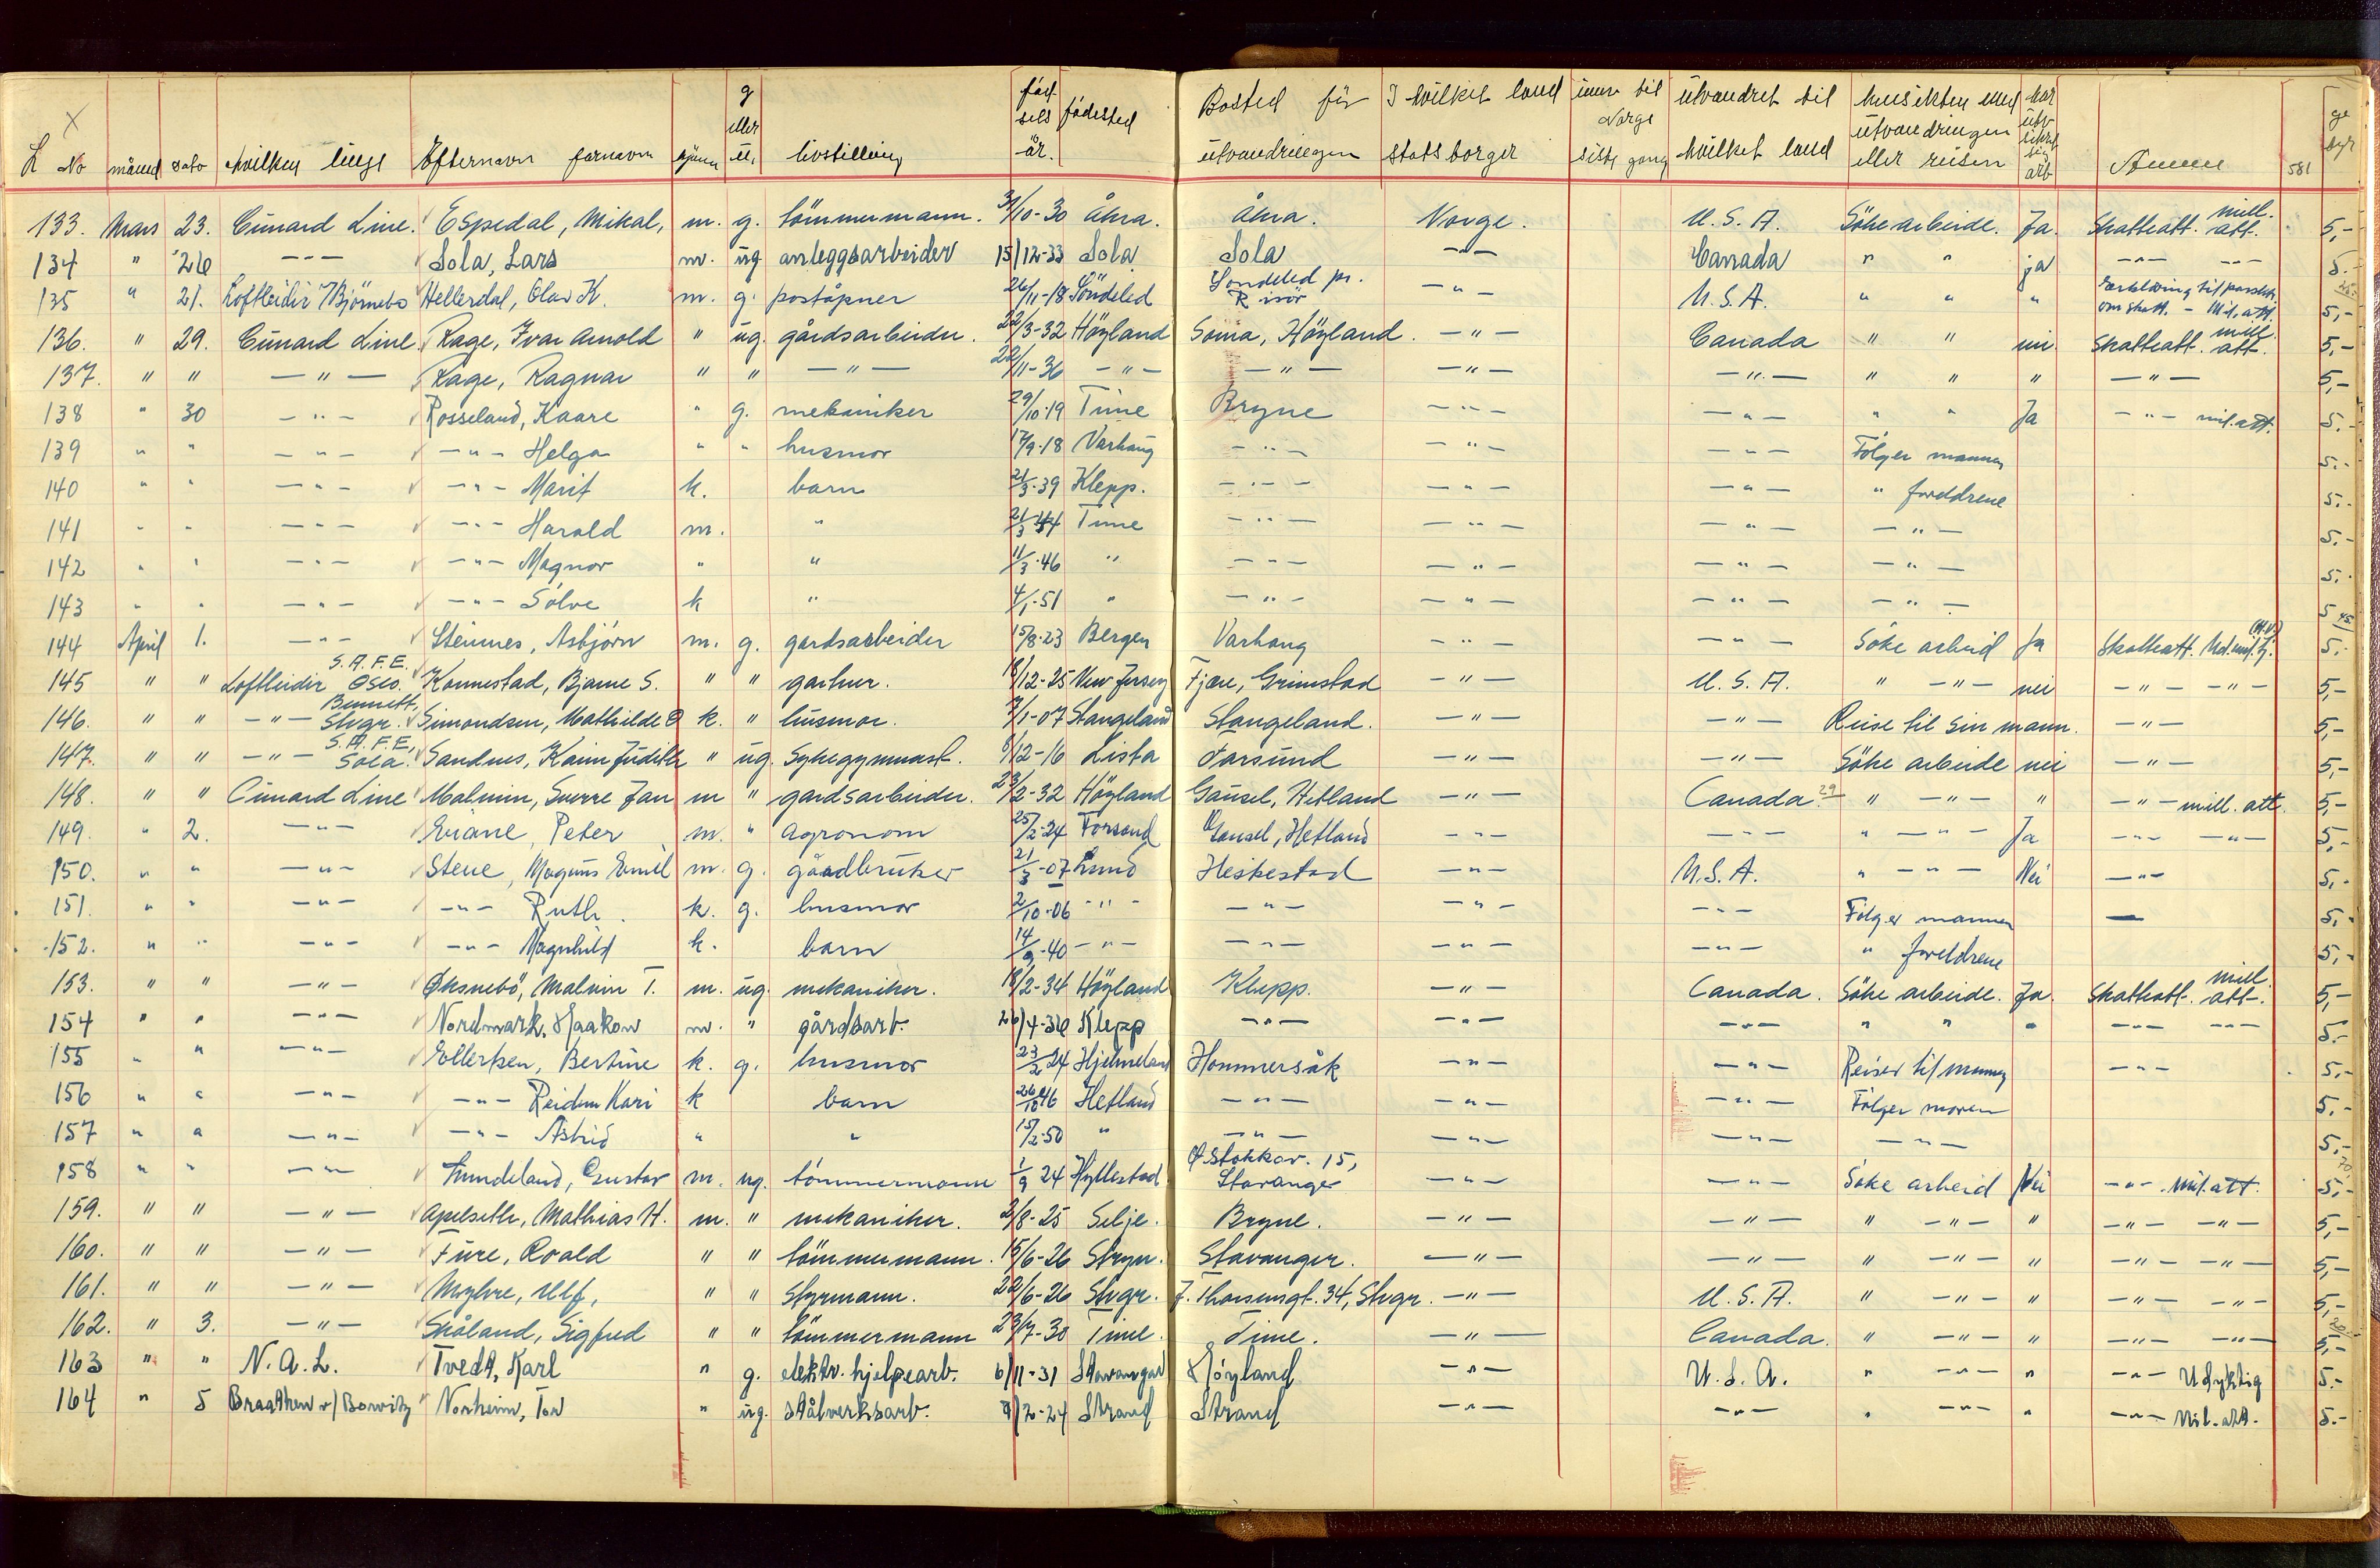 L No måned dato hvilken linje Efternavn fornavn kjønn g eller u. livstilling fødselsår. fødested Bosted før utvandringen I hvilket land statsborger inne til Norge siste gang utvandret til hvilket land hensikten med utvandringen eller reisen har utv. sikret sig arb Anm 581 gebyr
133. Mars 23. Cunard Line. Espedal, Mikal, m. g. tömmermann. 3/10-30 Åkra. Åkra. Norge. U.S.A. Söke arbeide. Ja. Skatteatt. mill. att. 5,-
134 " 26 -"- Sola, Lars m. ug anleggsarbeider 15/12-33 Sola Sola -"- Canada " " ja -"- -"- 5.-
135 " 21. Loftleidir v/Bjørnebo Hellerdal, Olav K. m. g. poståpner 26/11-18 Söndeled Sondeled pr. Risör -"- U.S.A. " " " Erklæring til passktr. om skatt. - Mil. att. 5,-
136. " 29. Cunard Line. Rage, Ivar Arnold " ug. gårdsarbeider. 22/3-32 Höyland Soma, Höyland. -"- Canada " " nei Skatteatt. mill. att. 5,-
137. " " -"- Rage, Ragnar " " -"- 22/11-36 -"- -"- -"- -"- " " " -"- 5,-
138 " 30 -"- Rosseland, Kaare " g. mekaniker 29/10-19 Time Bryne -"- -"- " " Ja -"- mil. att. 5.-
139 " " -"- -"- Helga " " husmor 17/9-18 Varhaug -"- -"- -"- Følger mannen 5.-
140 " " -"- -"- Marit k. barn 21/3-39 Klepp. -"- -"- -"- " foreldrene 5.-
141 " " -"- -"- Harald m. " 21/3 44 Time -"- -"- -"- -"- 5.-
142 " " -"- -"- Magnor " " 11/3-46 " -"- -"- -"- -"- 5.-
143 " " -"- -"- Sølve k " 4/1-51 " -"- -"- -"- -"- 5 45
144 April 1. -"- Steinnes, Asbjørn m. g. gardsarbeider 15/8-23 Bergen Varhaug -"- -"- Søke arbeid Ja Skatteatt. 5.-
145 " " Loftleidir S.A.F.E. Oslo. Konnestad, Bjarne S. " " gartner. 18/12-25 New Jersey Fjære, Grimstad -"- U.S.A. " -"- nei -"- -"- 5,-
146. " " -"- Bennett, Stvgr. Simondsen, Mathilde O k. " husmor. 7/1-07 Stangeland Stangeland. -"- -"- Reise til sin mann. -"- 5,-
147. " " -"- S.A.F.E, Sola. Sandnes, Karin Judith " ug. Sykegymnast. 8/12-16 Lista Farsund -"- -"- Söke arbeide nei -"- 5,-
148. " " Cunard Line Malmin, Sverre Jan m " gardsarbeider. 23/2-32 Höyland Gausel, Hetland -"- Canada. 29 " -"- " -"- mill. att. 5,-
149. " 2. -"- Eriane, Peter m. " Agronom 25/2-24 Forsand Gausel, Hetland -"- -"- " -"- Ja -"- -"- 5,-
150. " " -"- Stene, Magnus Emil m. g. gårdbruker 21/3-07 Lund Heskestad -"- U.S.A. " -"- Nei -"- 5.-
151. " " -"- -"- Ruth. k. g. husmor 2/10-06 -"- -"- -"- -"- Følger mannen — 5.-
152. " " -"- -"- Magnhild k. barn 14/9-40 -"- -"- -"- -"- " foreldrene 5.-
153. " " -"- Øksnebö, Malvin T. m. ug. mekaniker. 18/2-34 Höyland Klepp. -"- Canada. Söke arbeide. Ja. Skatteatt. mill. att. 5,-
154 " " -"- Nordmark, Haakon m. " gårdsarb. 26/4-36 Klepp -"- -"- -"- " " " -"- -"- 5.-
155 " " -"- Ellertsen, Bertine k. g. husmor 23/2 24 Hjelmeland Hommersåk -"- -"- Reiser til mannen -"- 5.-
156 " " -"- -"- Reidun Kari k barn 26/10 46 Hetland -"- -"- -"- Følger moren 5.-
157 " " -"- -"- Astrid " " 15/2-50 " -"- -"- -"- -"- 5.-
158 " " -"- Lundeland, Gustav m. ug. tömmermann 1/9 24 Hyllestad Ø. Stokkav. 15, Stavanger -"- -"- Søke arbeid Nei -"- Mil. att. 5.-
159. " " -"- Apelseth, Mathias H. m. " mekaniker. 2/8-25 Selje. Bryne. -"- -"- " -"- " -"- -"- 5,-
160. " " -"- Fure, Roald " " tömmermann. 15/6-26 Stryn. Stavanger. -"- -"- " -"- " -"- -"- 5,-
161. " " -"- Myhre, Ulf, " " Styrmann. 22/6-26 Stvgr. J. Thorsensgt. 34, Stvgr. -"- U.S.A. " -"- " -"- -"- 5,-
162. " 3. -"- Skåland, Sigfred " " tömmermann 23/7-30 Time. Time. -"- Canada. " -"- " -"- -"- 5,-
163 " " N.A.L. Tvedt, Karl " g. elektr. hjelpearb. 6/11-31 Stavanger Höyland -"- U.S.A. " -"- " -"- Udyktig 5.-
164 " 5 Braathen v/Bowitz Norheim, Tor " ug. stålverksarb. 8/2-24 Strand Strand -"- -"- " -"- " -"- Mil. att. 5.-